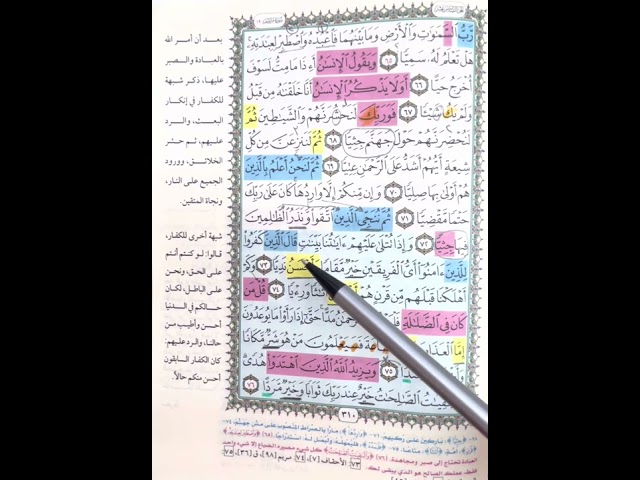 رَبُّ السَّمَٰوَٰتِ وَالْأَرْضِ وَمَا بَيْنَهُمَا فَاعْبُدْهُ وَاصْطَبِرْ لِعِبَٰدَتِهِ
هَلْ تَعْلَمُ لَهُ سَمِيًّا ٦٥ وَيَقُولُ الْإِنسَٰنُ أَءِذَا مَا مِتُّ لَسَوْفَ
أُخْرَجُ حَيًّا ٦٦ أَوَلَا يَذْكُرُ الْإِنسَٰنُ أَنَّا خَلَقْنَٰهُ مِن قَبْلُ
وَلَمْ يَكُ شَيْـًٔا ٦٧ فَوَرَبِّكَ لَنَحْشُرَنَّهُمْ وَالشَّيَٰطِينَ ثُمَّ
لَنُحْضِرَنَّهُمْ حَوْلَ جَهَنَّمَ جِثِيًّا ٦٨ ثُمَّ لَنَنزِعَنَّ مِن كُلِّ
شِيعَةٍ أَيُّهُمْ أَشَدُّ عَلَى الرَّحْمَٰنِ عِتِيًّا ٦٩ ثُمَّ لَنَحْنُ أَعْلَمُ بِالَّذِينَ
هُمْ أَوْلَىٰ بِهَا صِلِيًّا ٧٠ وَإِن مِّنكُمْ إِلَّا وَارِدُهَا كَانَ عَلَىٰ رَبِّكَ
حَتْمًا مَّقْضِيًّا ٧١ ثُمَّ نُنَجِّي الَّذِينَ اتَّقَوا وَّنَذَرُ الظَّٰلِمِينَ
فِيهَا جِثِيًّا ٧٢ وَإِذَا تُتْلَىٰ عَلَيْهِمْ ءَايَٰتُنَا بَيِّنَٰتٍ قَالَ الَّذِينَ كَفَرُوا
لِلَّذِينَ ءَامَنُوا أَيُّ الْفَرِيقَيْنِ خَيْرٌ مَّقَامًا وَأَحْسَنُ نَدِيًّا ٧٣ وَكَمْ
أَهْلَكْنَا قَبْلَهُم مِّن قَرْنٍ هُمْ أَثَٰثًا وَرِءْيًا ٧٤ قُلْ مَن
كَانَ فِي الضَّلَٰلَةِ الرَّحْمَٰنُ مَدًّا حَتَّىٰ إِذَا رَأَوْا مَا يُوعَدُونَ
إِمَّا الْعَذَابَ فَسَيَعْلَمُونَ مَنْ هُوَ شَرٌّ مَّكَانًا
٧٥ وَيَزِيدُ اللَّهُ الَّذِينَ اهْتَدَوْا هُدًى
الصَّٰلِحَٰتُ خَيْرٌ عِندَ رَبِّكَ ثَوَابًا وَخَيْرٌ مَّرَدًّا ٧٦
٣١٠
بعد أن أمر الله
بالعبادة والصبر
عليها، ذكر شبهة
للكفار في إنكار
البعث، والرد
عليهم، ثم حشر
الخلائق، وورود
الجميع على النار،
ونجاة المتقين.
شبهة أخرى للكفار،
قالوا: لو كنتم أنتم
على الحق، ونحن
على الباطل، لكان
حالكم في الدنيا
أحسن وأطيب من
حالنا، والرد عليهم:
كان الكفار السابقون
أحسن منكم حالاً.